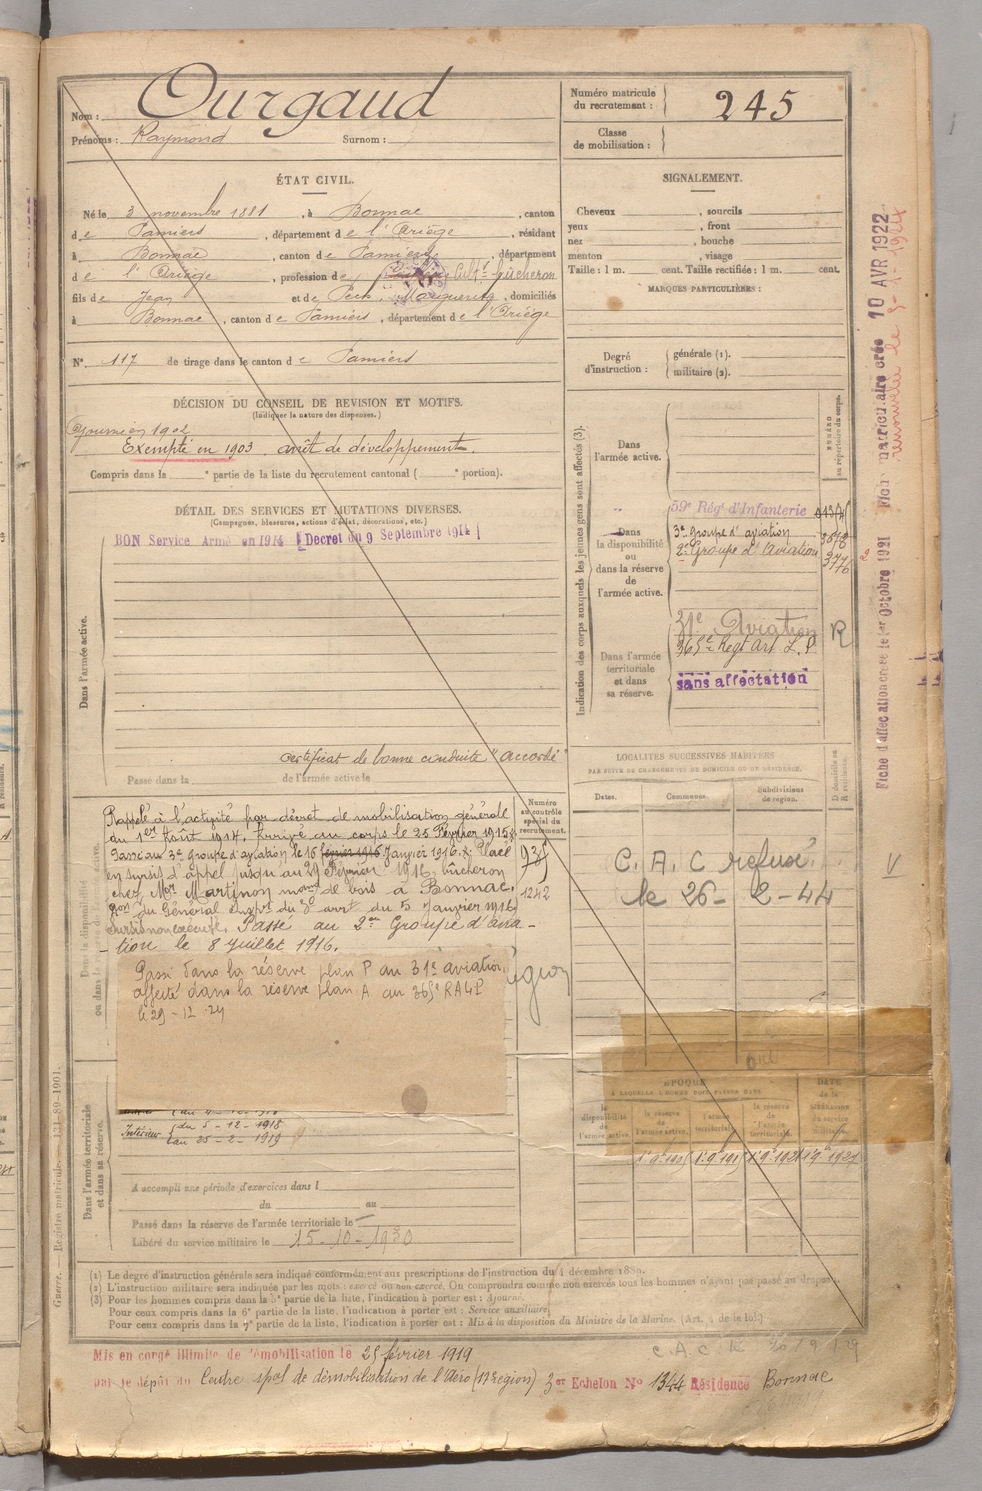 Nom : Ourgaud
Prénoms : Raymond Surnom :
Numéro matricule du recrutement : 245
Classe de mobilisation :
ÉTAT CIVIL.
Né le 3 novembre 1881, à Bonnac, canton
de Pamiers, département de l'Ariège, résidant
à Bonnac, canton de Pamiers, département
de l'Ariège, profession de Cultr bûcheron
fils de Jean et de Pech, Marguerite, domiciliés
à Bonnac, canton de Pamiers, département de l'Ariège
N° 117 de tirage dans le canton de Pamiers
DÉCISION DU CONSEIL DE REVISION ET MOTIFS.
(Indiquer la nature des dispenses.)
Ajourné en 1902
Exempté en 1903. arrêt de développement.
Compris dans la ° partie de la liste du recrutement cantonal ( ° portion).
DÉTAIL DES SERVICES ET MUTATIONS DIVERSES.
(Campagnes, blessures, actions d'éclat, décorations, etc.)
BON Service Armé en 1914 [Décret du 9 Septembre 1914]
Dans l'armée active.
certificat de bonne conduite "accordé"
Passé dans la de l'armée active le
SIGNALEMENT.
Cheveux , sourcils
yeux , front
nez , bouche
menton , visage
Taille : 1 m. cent. Taille rectifiée : 1 m. cent.
MARQUES PARTICULIÈRES :
Degré d'instruction : générale (1).
militaire (2).
Indication des corps auxquels les jeunes gens sont affectés (3).
NUMÉRO au répertoire du corps.
Dans l'armée active.
Dans la disponibilité ou dans la réserve de l'armée active.
59e Régt d'Infanterie
3e groupe d'aviation 3878
2e Groupe d'Aviation 3776
Dans l'armée territoriale et dans sa réserve.
31e Aviation R
365e Regt Art. L. P.
sans affectation
LOCALITÉS SUCCESSIVES HABITÉES
PAR SUITE DE CHANGEMENTS DE DOMICILE OU DE RÉSIDENCE.
Dates. Communes. Subdivisions de région. D domicile ou R résidence.
C. A. C refusé
le 26 - 2 - 44
V
Numéro au contrôle spécial du recrutement.
935
1242
Rappelé à l'activité par décret de mobilisation générale
du 1er Août 1914. Arrivé au corps le 25 Février 1915.
Passé au 3e Groupe d'aviation le 16 février 1916 Janvier 1916. Placé
en sursis d'appel jusqu'au 29 Février 1916, bûcheron
chez Mr Martinon md de bois à Bonnac.
don du Général Inspr du 3e arrt du 5 Janvier 1916
Sursis non exécuté. Passé au 2me Groupe d'avia-
tion le 8 Juillet 1916.
Passé dans la réserve plan P au 31e aviation,
affecté dans la réserve plan A au 365e RALP
le 29 - 12 - 24
Intérieur du 5 - 12 - 1918
au 25 - 2 - 1919
Dans l'armée territoriale et dans sa réserve.
A accompli une période d'exercices dans l
du au
Passé dans la réserve de l'armée territoriale le
Libéré du service militaire le 15-10-1930
ÉPOQUE
À LAQUELLE L'HOMME DOIT PASSER DANS
la disponibilité de l'armée active. la réserve de l'armée active. l'armée territoriale. la réserve de l'armée territoriale.
DATE de la libération du service militaire.
(1) Le degré d'instruction générale sera indiqué conformément aux prescriptions de l'instruction du 4 décembre 1889.
(2) L'instruction militaire sera indiquée par les mots : exercé ou non exercé. On comprendra comme non exercés tous les hommes n'ayant pas passé au drapeau.
(3) Pour les hommes compris dans la 5e partie de la liste, l'indication à porter est : Ajourné.
Pour ceux compris dans la 6e partie de la liste, l'indication à porter est : Service auxiliaire.
Pour ceux compris dans la 7e partie de la liste, l'indication à porter est : Mis à la disposition du Ministre de la Marine. (Art. 4 de la loi.)
Mis en congé illimité de démobilisation le 25 février 1919
par le dépôt du Centre spal de démobilisation de l'Aéro (17e région) 3er Echelon N° 1344 Résidence Bonnac
Guerre. — Registre matricule. — 131-89-1901.
Fiche d'affectation créée le 1er Octobre 1921 Fiche matriculaire créée 10 AVR 1922